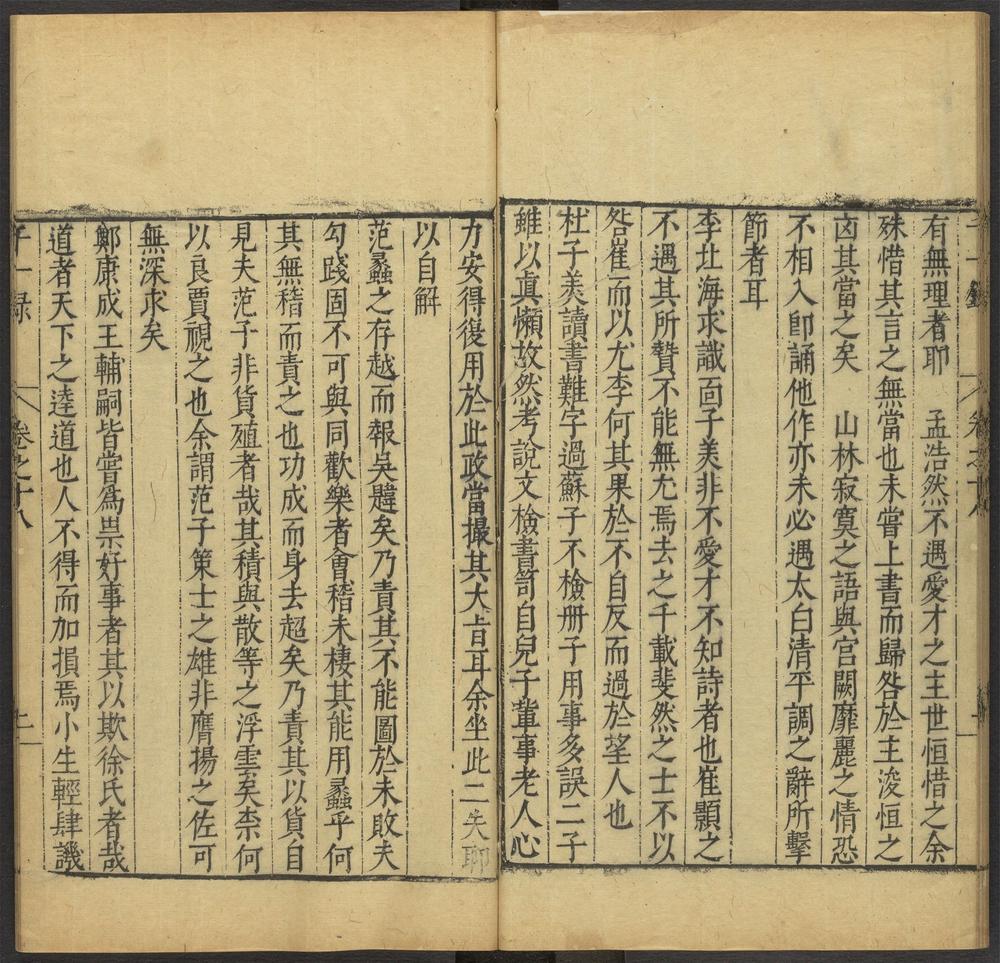 有無理者耶　孟浩然不遇愛才之主世恒惜之余
殊惜其言之無當也未嘗上書而歸咎於主浚恒之
凶其當之矣　山林寂寞之語與宮闕靡麗之情恐
不相入卽誦他作亦未必遇太白清平調之辭所擊
節者耳
李北海求識面子美非不愛才不知詩者也崔顥之
不遇其所贄不能無尤焉去之千載斐然之士不以
咎崔而以尤李何其果於不自反而過於望人也
杜子美讀書難字過蘇子不檢册子用事多誤二子
雖以眞懶故然考說文檢書笥自兒子軰事老人心
力安得復用於此政當撮其大旨耳余坐此二失聊
以自解
范蠡之存越而報吳韙矣乃責其不能圖於未敗夫
勾踐固不可與同歡樂者會稽未棲其能用蠡乎何
其無稽而責之也功成而身去超矣乃責其以貨自
見夫范子非貨殖者哉其積與散等之浮雲矣柰何
以良賈視之也余謂范子策士之雄非鷹揚之佐可
無深求矣
鄭康成王輔嗣皆嘗爲祟好事者其以欺徐氏者哉
道者天下之逵道也人不得而加損焉小生輕肆譏
子一錄
卷之十八